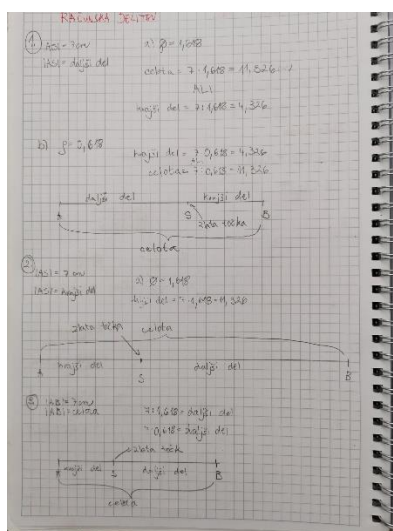 RAČUNSKA DELITEV
1. |AS| = 7 cm a) Φ = 1,618
|AS| = daljši del
celota = 7 · 1,618 = 11,326
ALI
krajši del = 7 : 1,618 = 4,326
b) ρ = 0,618
krajši del = 7 · 0,618 = 4,326
celota = 7 : 0,618 = 11,326
daljši del krajši del
A S B
zlata točka
celota
2. |AS| = 7 cm a) Φ = 1,618
|AS| = krajši del
1,618 = 11,326
zlata točka celota
krajši del daljši del
A S B
3. |AB| = 7 cm
|AB| = celota 7 : 1,618 = daljši del
0,618 = daljši del
zlata točk
krajši del S daljši del B
celota